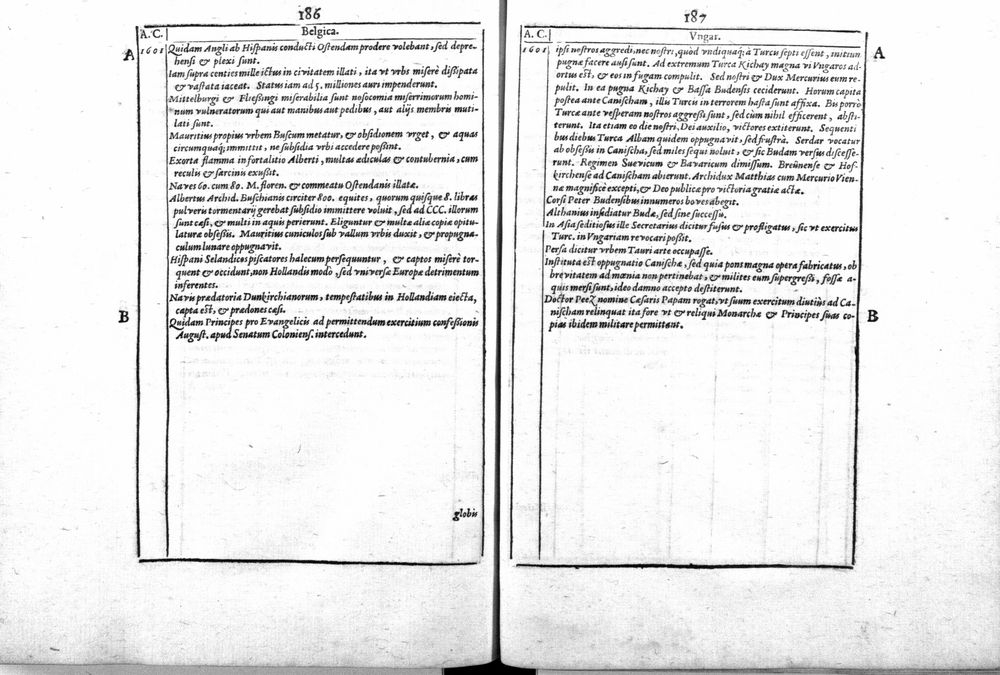 186
A. C.
Belgica.
A
1601
Quidam Angli ab Hispanis conducti Ostendam prodere volebant, sed depre-
hensi & plexi sunt.
Iam supra centies mille ictus in civitatem illati, ita vt vrbs miserè dissipata
& vastata iaceat. Status iam ad 5. milliones auri impenderunt.
Mittelburgi & Flissingi miserabilia sunt nosocomia miserrimorum homi-
num vulneratorum qui aut manibus aut pedibus, aut alijs membris muti-
lati sunt.
Mauritius propius vrbem Buscum metatur, & obsidionem vrget, & aquas
circumquaq; immittit, ne subsidia vrbi accedere possint.
Exorta flamma in fortalitio Alberti, multas ædiculas & contubernia, cum
reculis & sarcinis exussit.
Naves 60. cum 80. M. floren. & commeatu Ostendanis illatæ.
Albertus Archid. Buschianis circiter 800. equites, quorum quisque 8. libras
pulveris tormentarij gerebat subsidio immittere voluit, sed ad CCC. illorum
sunt cæsi, & multi in aquis perierunt. Eliguntur & multæ aliæ copiæ opitu-
laturæ obsessis. Mauritius cuniculos sub vallum vrbis duxit, & propugna-
culum lunare oppugnavit.
Hispani Selandicos piscatores halecum persequuntur, & captos miserè tor-
quent & occidunt, non Hollandis modò, sed vniversæ Europæ detrimentum
inferentes.
Navis prædatoria Dunkirchianorum, tempestatibus in Hollandiam eiecta,
capta est, & prædones cæsi.
B
Quidam Principes pro Evangelicis ad permittendum exercitium confessionis
August. apud Senatum Coloniens. intercedunt.
globis
187
A. C.
Vngar.
A
1601
ipsi nostros aggredi, nec nostri, quòd vndiquaq; à Turcis septi essent, initium
pugnæ facere ausi sunt. Ad extremum Turca Kichay magna vi Vngaros ad-
ortus est, & eos in fugam compulit. Sed nostri & Dux Mercurius eum re-
pulit. In ea pugna Kichay & Bassa Budensis ceciderunt. Horum capita
postea ante Canischam, illis Turcis in terrorem hasta sunt affixa. Bis porrò
Turcæ ante vesperam nostros aggressi sunt, sed cùm nihil efficerent, absti-
terunt. Ita etiam eo die nostri, Dei auxilio, victores extiterunt. Sequenti
bus diebus Turca Albam quidem oppugnavit, sed frustrà. Serdar vocatur
ab obsessis in Canischa, sed miles sequi noluit, & sic Budam versus discesse-
runt. Regimen Suevicum & Bavaricum dimissum. Breünense & Hof-
kirchense ad Canischam abierunt. Archidux Matthias cum Mercurio Vien-
næ magnificè excepti, & Deo publicæ pro victoria gratiæ actæ.
Corsi Peter Budensibus innumeros boves abegit.
Althanius insidiatur Budæ, sed sine successu.
In Asia seditiosus ille Secretarius dicitur fusus & profligatus, sic vt exercitus
Turc. in Vngariam revocari possit.
Persa dicitur vrbem Tauri arte occupasse.
Instituta est oppugnatio Canischæ, sed quia pons magna opera fabricatus, ob
brevitatem ad mœnia non pertinebat, & milites eum supergressi, fossæ a-
quis mersi sunt, ideo damno accepto destiterunt.
Doctor Peez nomine Cæsaris Papam rogat, vt suum exercitum diutiùs ad Ca-
nischam relinquat ita fore vt & reliqui Monarchæ & Principes suas co-
B
pias ibidem militare permittant.